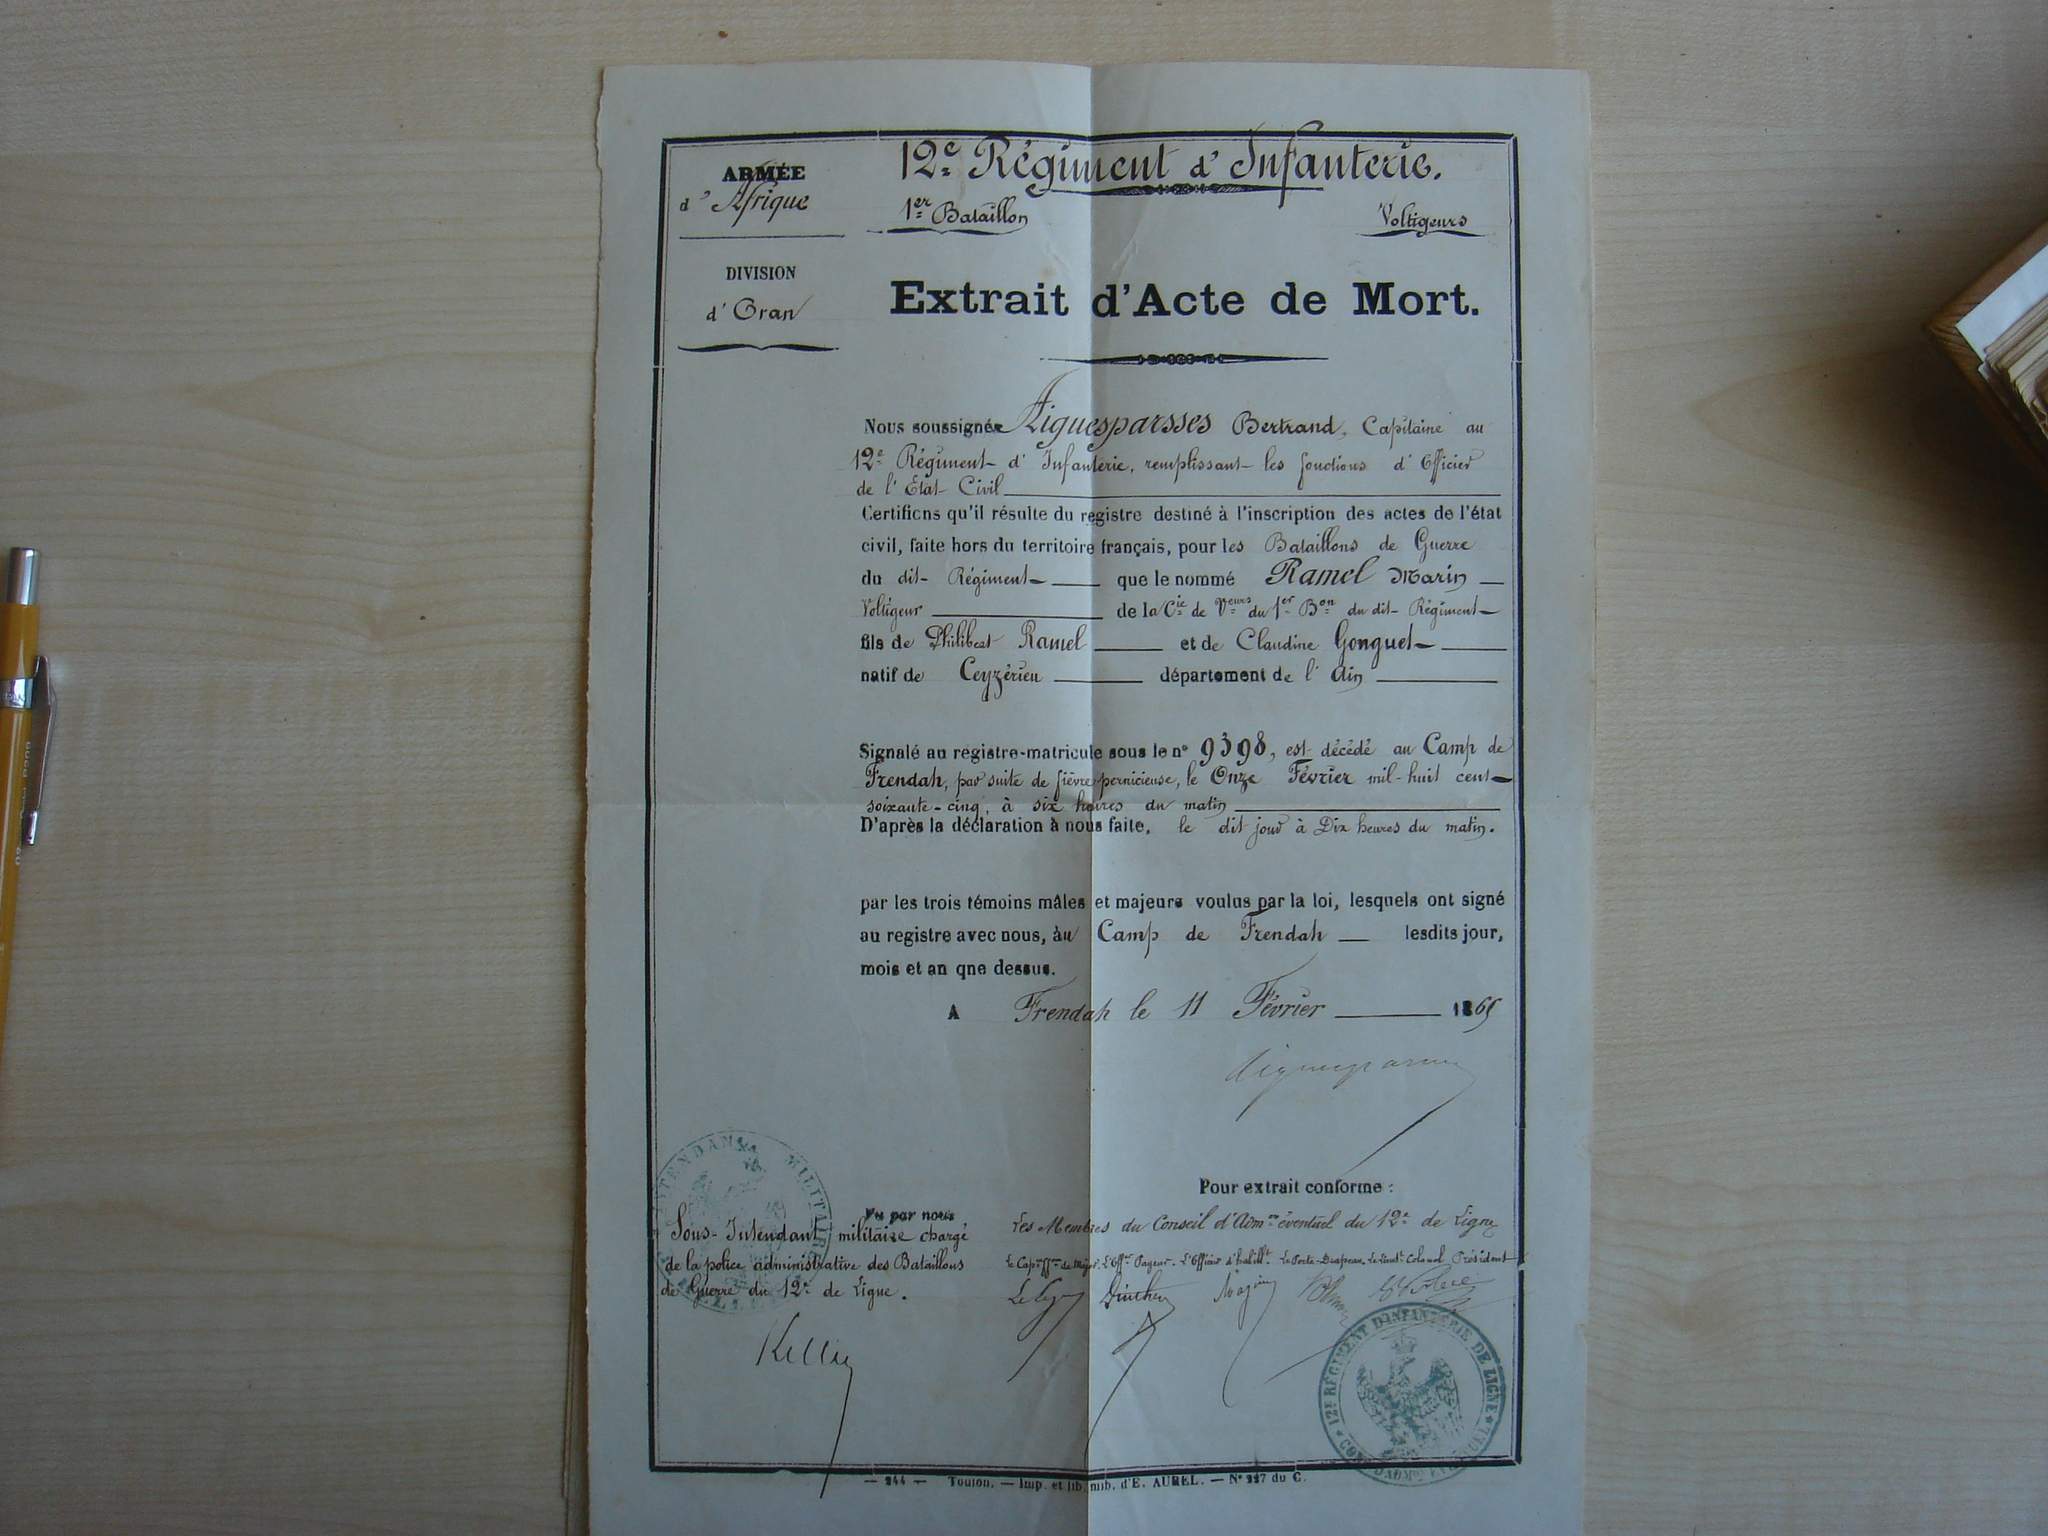 ARMÉE
d'Afrique
DIVISION
d'Oran
12e Régiment d'Infanterie.
1er Bataillon Voltigeurs
Extrait d'Acte de Mort.
Nous soussigné Aiguesparsses Bertrand, Capitaine au
12e Régiment d'Infanterie, remplissant les fonctions d'Officier
de l'Etat Civil
Certifions qu'il résulte du registre destiné à l'inscription des actes de l'état
civil, faite hors du territoire français, pour les Bataillons de Guerre
du dit Régiment que le nommé Ramel Marin
Voltigeur de la Cie de Veurs du 1er Bon du dit Régiment
fils de Philibert Ramel et de Claudine Gonguet
natif de Ceyzérieu département de l'Ain
Signalé au registre-matricule sous le n° 9398, est décédé au Camp de
Frendah, par suite de fièvre pernicieuse, le Onze Février mil-huit cent
soixante-cinq, à six heures du matin
D'après la déclaration à nous faite, le dit jour à Dix heures du matin.
par les trois témoins mâles et majeurs voulus par la loi, lesquels ont signé
au registre avec nous, au Camp de Frendah lesdits jour,
mois et an qne dessus.
A Frendah le 11 Février 1865
Pour extrait conforme :
Vu par nous
Sous-Intendant militaire chargé
de la police administrative des Bataillons
de Guerre du 12e de Ligne.
Les Membres du Conseil d'Adm.on éventuel du 12e de Ligne
L'Off.er Payeur. L'Officier d'habill.t Le Porte-Drapeau. Le Lieut.t Colonel Président
INTENDANCE MILITAIRE
12E RÉGIMENT D'INFANTERIE DE LIGNE
CON. D'ADMON EVENTUEL
— 244 — Toulon. — Imp. et lib. mib. d'E. AUREL. — N° 227 du C.